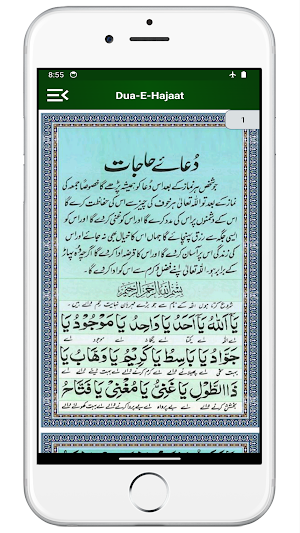 8:55
Dua-E-Hajaat
1
دُعائے حاجات
جو شخص ہر نماز کے بعد اس دُعا کو ہمیشہ پڑھے گا خصوصاً جمعہ کی
نماز کے بعد تو اللہ تعالیٰ ہر خوف کی چیز سے اس کی حفاظت کرے گا اور
اس کے دشمنوں پر اس کی مدد کرے گا اور اس کو غنی کر دے گا اور اس کو
ایسی جگہ سے رزق پہنچائے گا جہاں اس کا خیال بھی نہ جائے اور اس
کی زندگی اس پر آسان کر دے گا اور اس کا قرضہ ادا کر دے گا اگرچہ پہاڑ
کے برابر ہو۔ اللہ تعالیٰ اپنے فضل و کرم سے اس کو ادا کر دے گا۔
بِسْمِ اللهِ الرَّحْمٰنِ الرَّحِيْمِ
يَا اَللّٰهُ يَا اَحَدُ يَا وَاحِدُ يَا مَوْجُوْدُ يَا
جَوَادُ يَا بَاسِطُ يَا كَرِيْمُ يَا وَهَّابُ يَا
ذَا الطَّوْلِ يَا غَنِيُّ يَا مُغْنِيُ يَا فَتَّاحُ